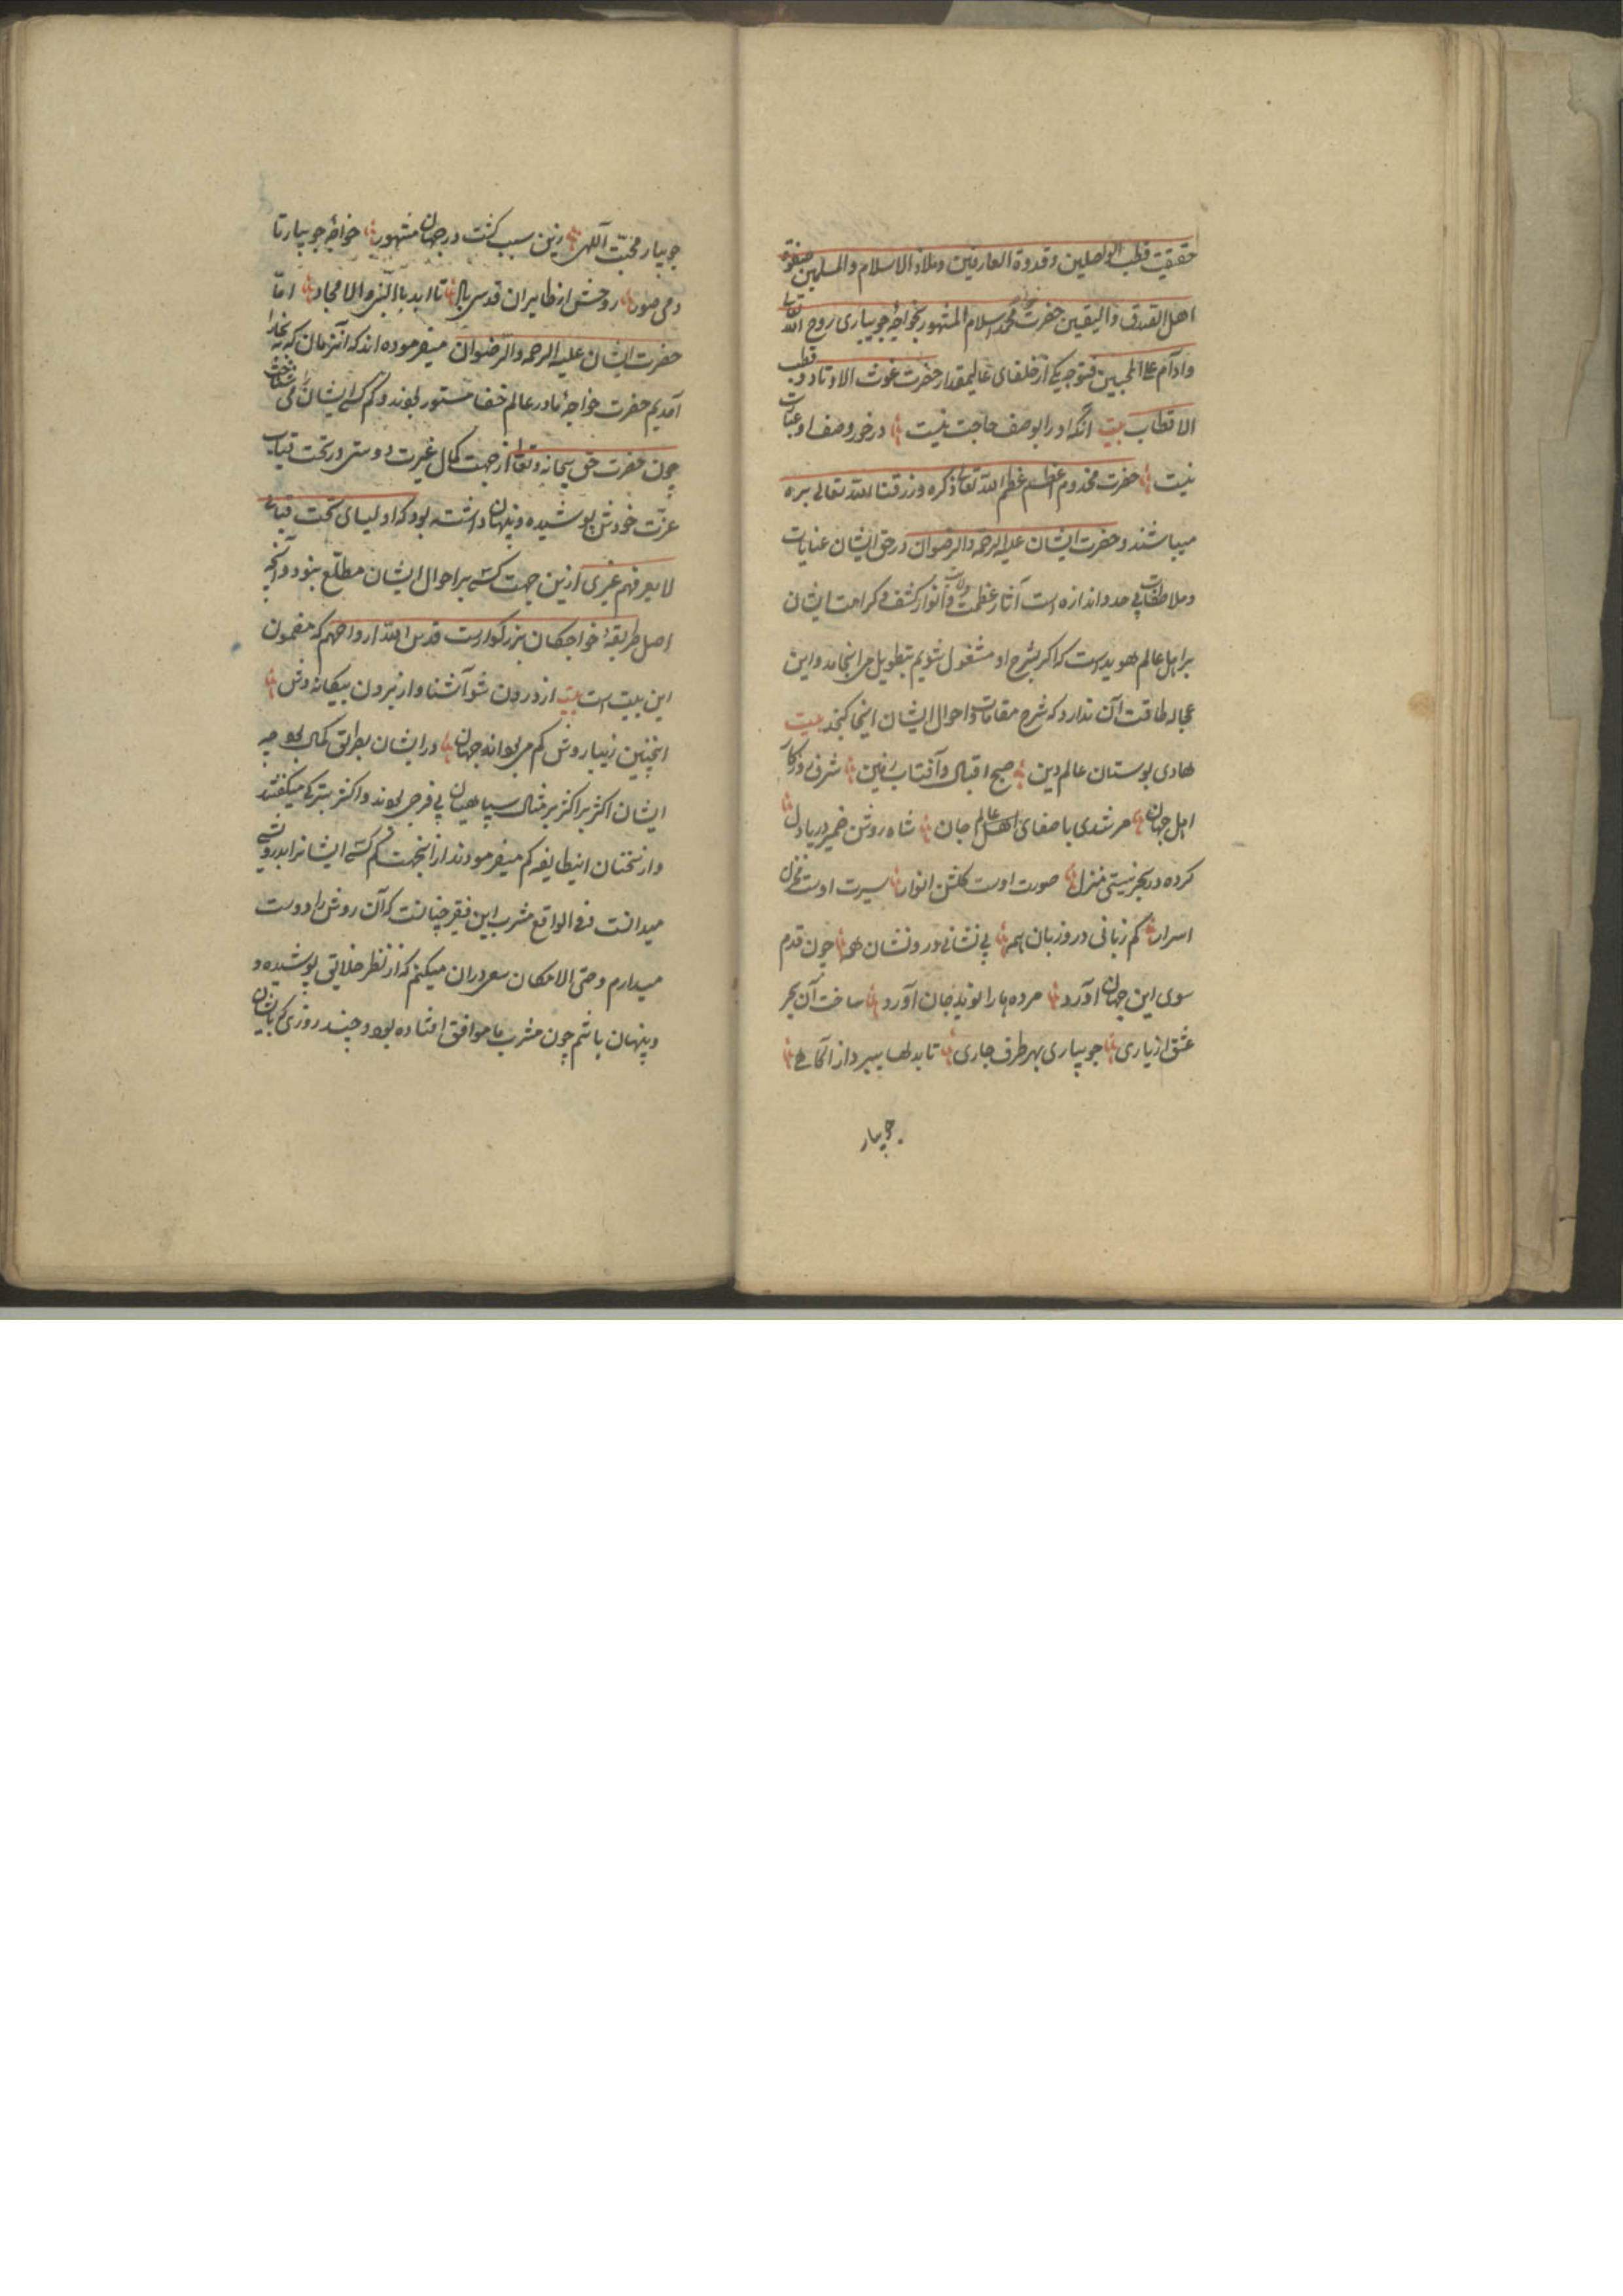 حقیقت قطب الواصلین و قدوة العارفین و ملاذ الاسلام والمسلمین صفوة
اهل الصدق والیقین حضرت محمد اسلام المشهور بخواجۀ جویباری روح الله تعالی
وادام علی المحبین فتوحه یکی از خلفای عالیمقدار حضرت غوث الاوتاد و قطب
الاقطاب بیت آنکه او را بوصف حاجت نیست در خور وصف او عبارت
نیست حضرت مخدوم اعظم عظم الله تعالی ذکره ورزقنا الله تعالی بره
میباشند و حضرت ایشان علیه الرحمه والرضوان در حق ایشان عنایات
وملاطفات بی حد و اندازه است آثار عظمت و ولایت و انوار کشف و کرامت ایشان
بر اهل عالم هویداست که اگر بشرح او مشغول شویم بتطویل می انجامد و این
عجاله طاقت آن ندارد که شرح مقامات و احوال ایشان اینجا گنجد بیت
هادی بوستان عالم دین صبح اقبال و آفتاب زمین شرف روزگار
اهل جهان مرشدی باصفای اهل عالم جان شاه روشن ضمیر دریا دل
کرده در بحر نیستی منزل صورت اوست گلشن انوار سیرت اوست مخزن
اسرار کم زبانی در و زبان همه بی نشانی درو نشان همه چون قدم
سوی این جهان آورد مرده ها را نوید جان آورد ساخت آن بحر
عشق از یاری جویباری بهر طرف جاری تا بدلها سپرد از آگاهی
جویبار
جویبار محبت اللهی زین سبب گشت در جهان مشهور خواجۀ جویبار تا
دمی صور روحش از طایران قدسی باد تا ابد بالنبی و الامجاد اما
حضرت ایشان علیه الرحمه والرضوان میفرموده اند که آنزمان که به بخارا
آمدیم حضرت خواجۀ ما در عالم خفا مستور بودند و کم کسی ایشان را می شناخت
چون حضرت حق سبحانه و تعالی از جهت کمال غیرت دوستی در تحت قباب
عزت خودش پوشیده و پنهان داشته بود که اولیای تحت قبابی
لا یعرفهم غیری ازین جهت کسی بر احوال ایشان مطلع نبود و آنچه
اصل طریقۀ خواجکان بزرگوارست قدس الله ارواحهم که مضمون
این بیت است بیت از درون شو آشنا و از برون بیگانه وش
اینچنین زیبا روش کم می بود اندر جهان در ایشان بطریق کمال بود چه
ایشان اکثر بر مثال سپاهیان بی فرجی بودند و اکثر بترکی میگفتند
و از سخنان اینطایفه کم میفرمودند از اینجهت کم کسی ایشانرا بدرویشی
میدانست فی الواقع مشرب این فقیر چنانست که آن روش را دوست
میدارم و حتی الامکان سعی در آن میکنم که از نظر خلایق پوشیده و
و پنهان باشم چون مشرب ما موافق افتاده بود و چند روزی که بایشان